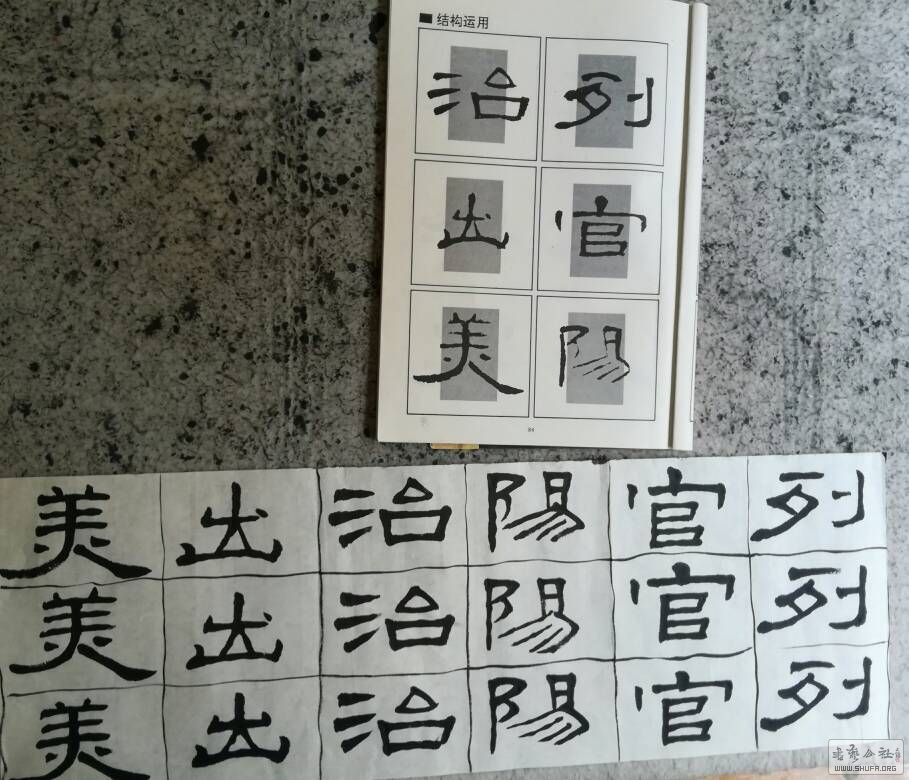 结构运用
治列
出官
美陽
84
美出治陽官列
美出治陽官列
美出治陽官列
书艺公社
WWW.SHUFA.ORG